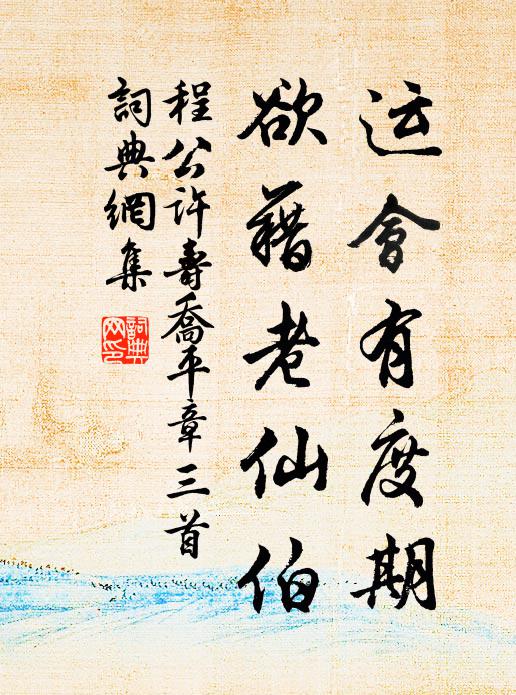 运會有度期
欲藉老仙伯
程公许壽喬平章三首
詞典網集
詞典
网印